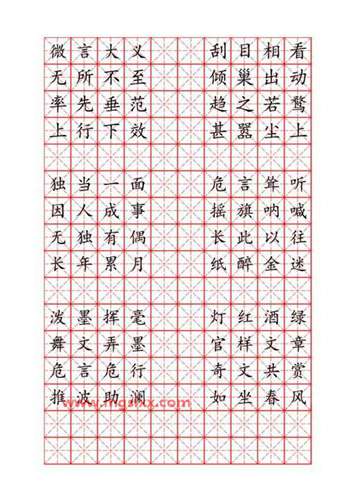 微言大义 刮目相看
无所不至 倾巢出动
率先垂范 趋之若鹜
上行下效 甚嚣尘上
独当一面 危言耸听
因人成事 摇旗呐喊
无独有偶 长此以往
长年累月 纸醉金迷
泼墨挥毫 灯红酒绿
舞文弄墨 官样文章
危言危行 奇文共赏
推波助澜 如坐春风